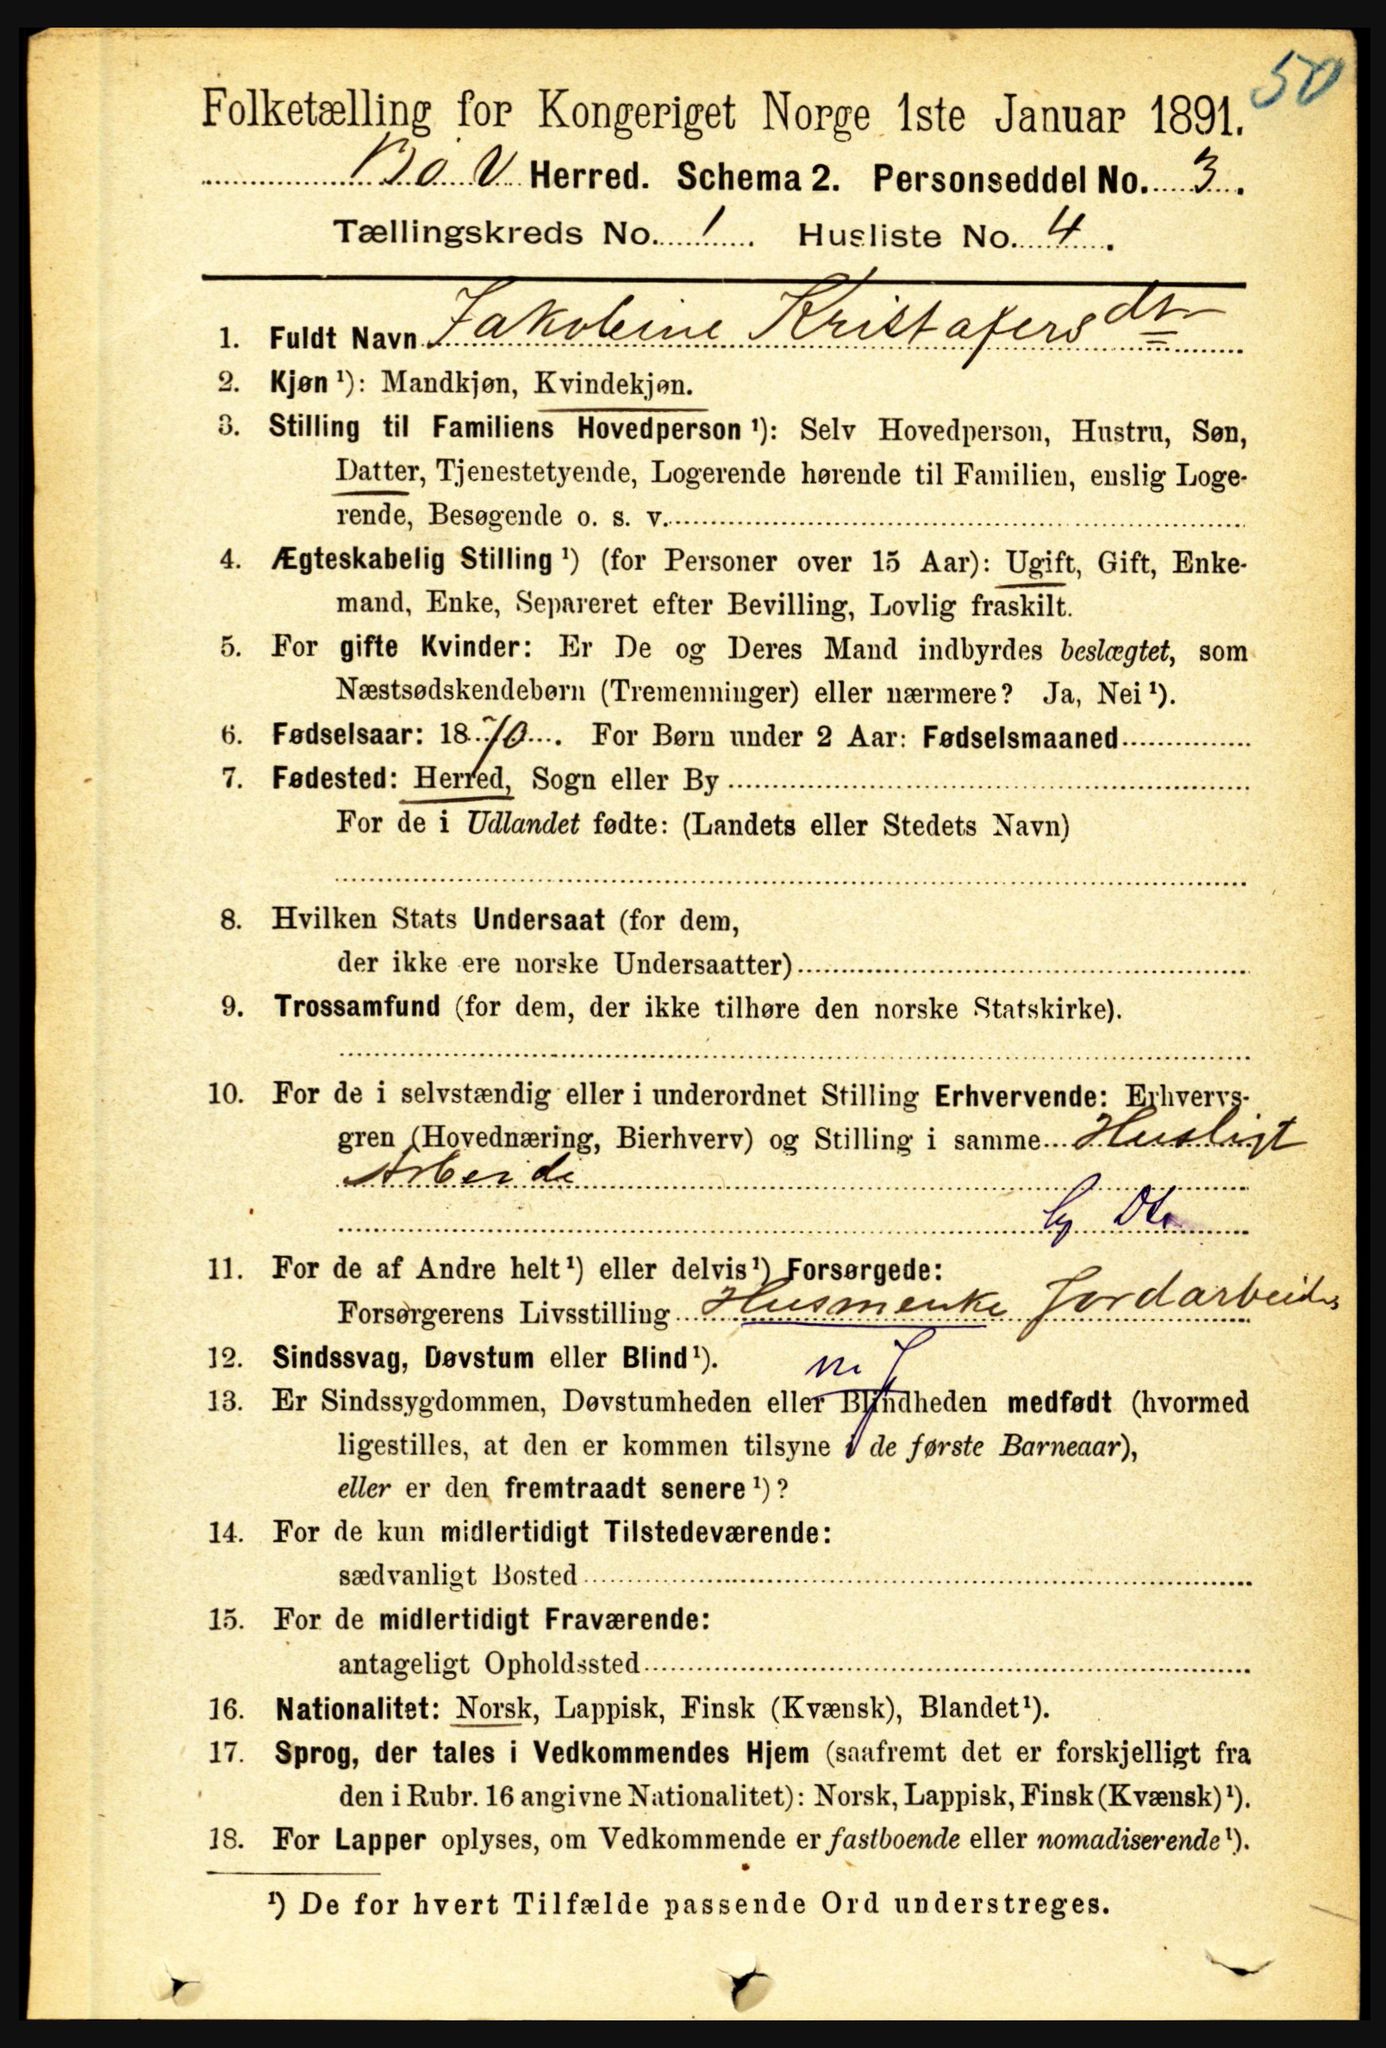 50
Folketælling for Kongeriget Norge 1ste Januar 1891.
Bø V Herred. Schema 2. Personseddel No. 3.
Tællingskreds No. 1. Husliste No. 4.
1. Fuldt Navn Jakobine Kristofersdtr
2. Kjøn ¹): Mandkjøn, Kvindekjøn.
3. Stilling til Familiens Hovedperson ¹): Selv Hovedperson, Hustru, Søn,
Datter, Tjenestetyende, Logerende hørende til Familien, enslig Loge-
rende, Besøgende o. s. v.
4. Ægteskabelig Stilling ¹) (for Personer over 15 Aar): Ugift, Gift, Enke-
mand, Enke, Separeret efter Bevilling, Lovlig fraskilt.
5. For gifte Kvinder: Er De og Deres Mand indbyrdes beslægtet, som
Næstsødskendebørn (Tremenninger) eller nærmere? Ja, Nei ¹).
6. Fødselsaar: 1870. For Børn under 2 Aar: Fødselsmaaned
7. Fødested: Herred, Sogn eller By
For de i Udlandet fødte: (Landets eller Stedets Navn)
8. Hvilken Stats Undersaat (for dem,
der ikke ere norske Undersaatter)
9. Trossamfund (for dem, der ikke tilhøre den norske Statskirke).
10. For de i selvstændig eller i underordnet Stilling Erhvervende: Erhvervs-
gren (Hovednæring, Bierhverv) og Stilling i samme Husligt
Arbeide
11. For de af Andre helt ¹) eller delvis ¹) Forsørgede:
Forsørgerens Livsstilling Husmenke Jordarbeide
12. Sindssvag, Døvstum eller Blind ¹).
13. Er Sindssygdommen, Døvstumheden eller Blindheden medfødt (hvormed
ligestilles, at den er kommen tilsyne i de første Barneaar),
eller er den fremtraadt senere ¹)?
14. For de kun midlertidigt Tilstedeværende:
sædvanligt Bosted
15. For de midlertidigt Fraværende:
antageligt Opholdssted
16. Nationalitet: Norsk, Lappisk, Finsk (Kvænsk), Blandet ¹).
17. Sprog, der tales i Vedkommendes Hjem (saafremt det er forskjelligt fra
den i Rubr. 16 angivne Nationalitet): Norsk, Lappisk, Finsk (Kvænsk) ¹).
18. For Lapper oplyses, om Vedkommende er fastboende eller nomadiserende ¹).
¹) De for hvert Tilfælde passende Ord understreges.